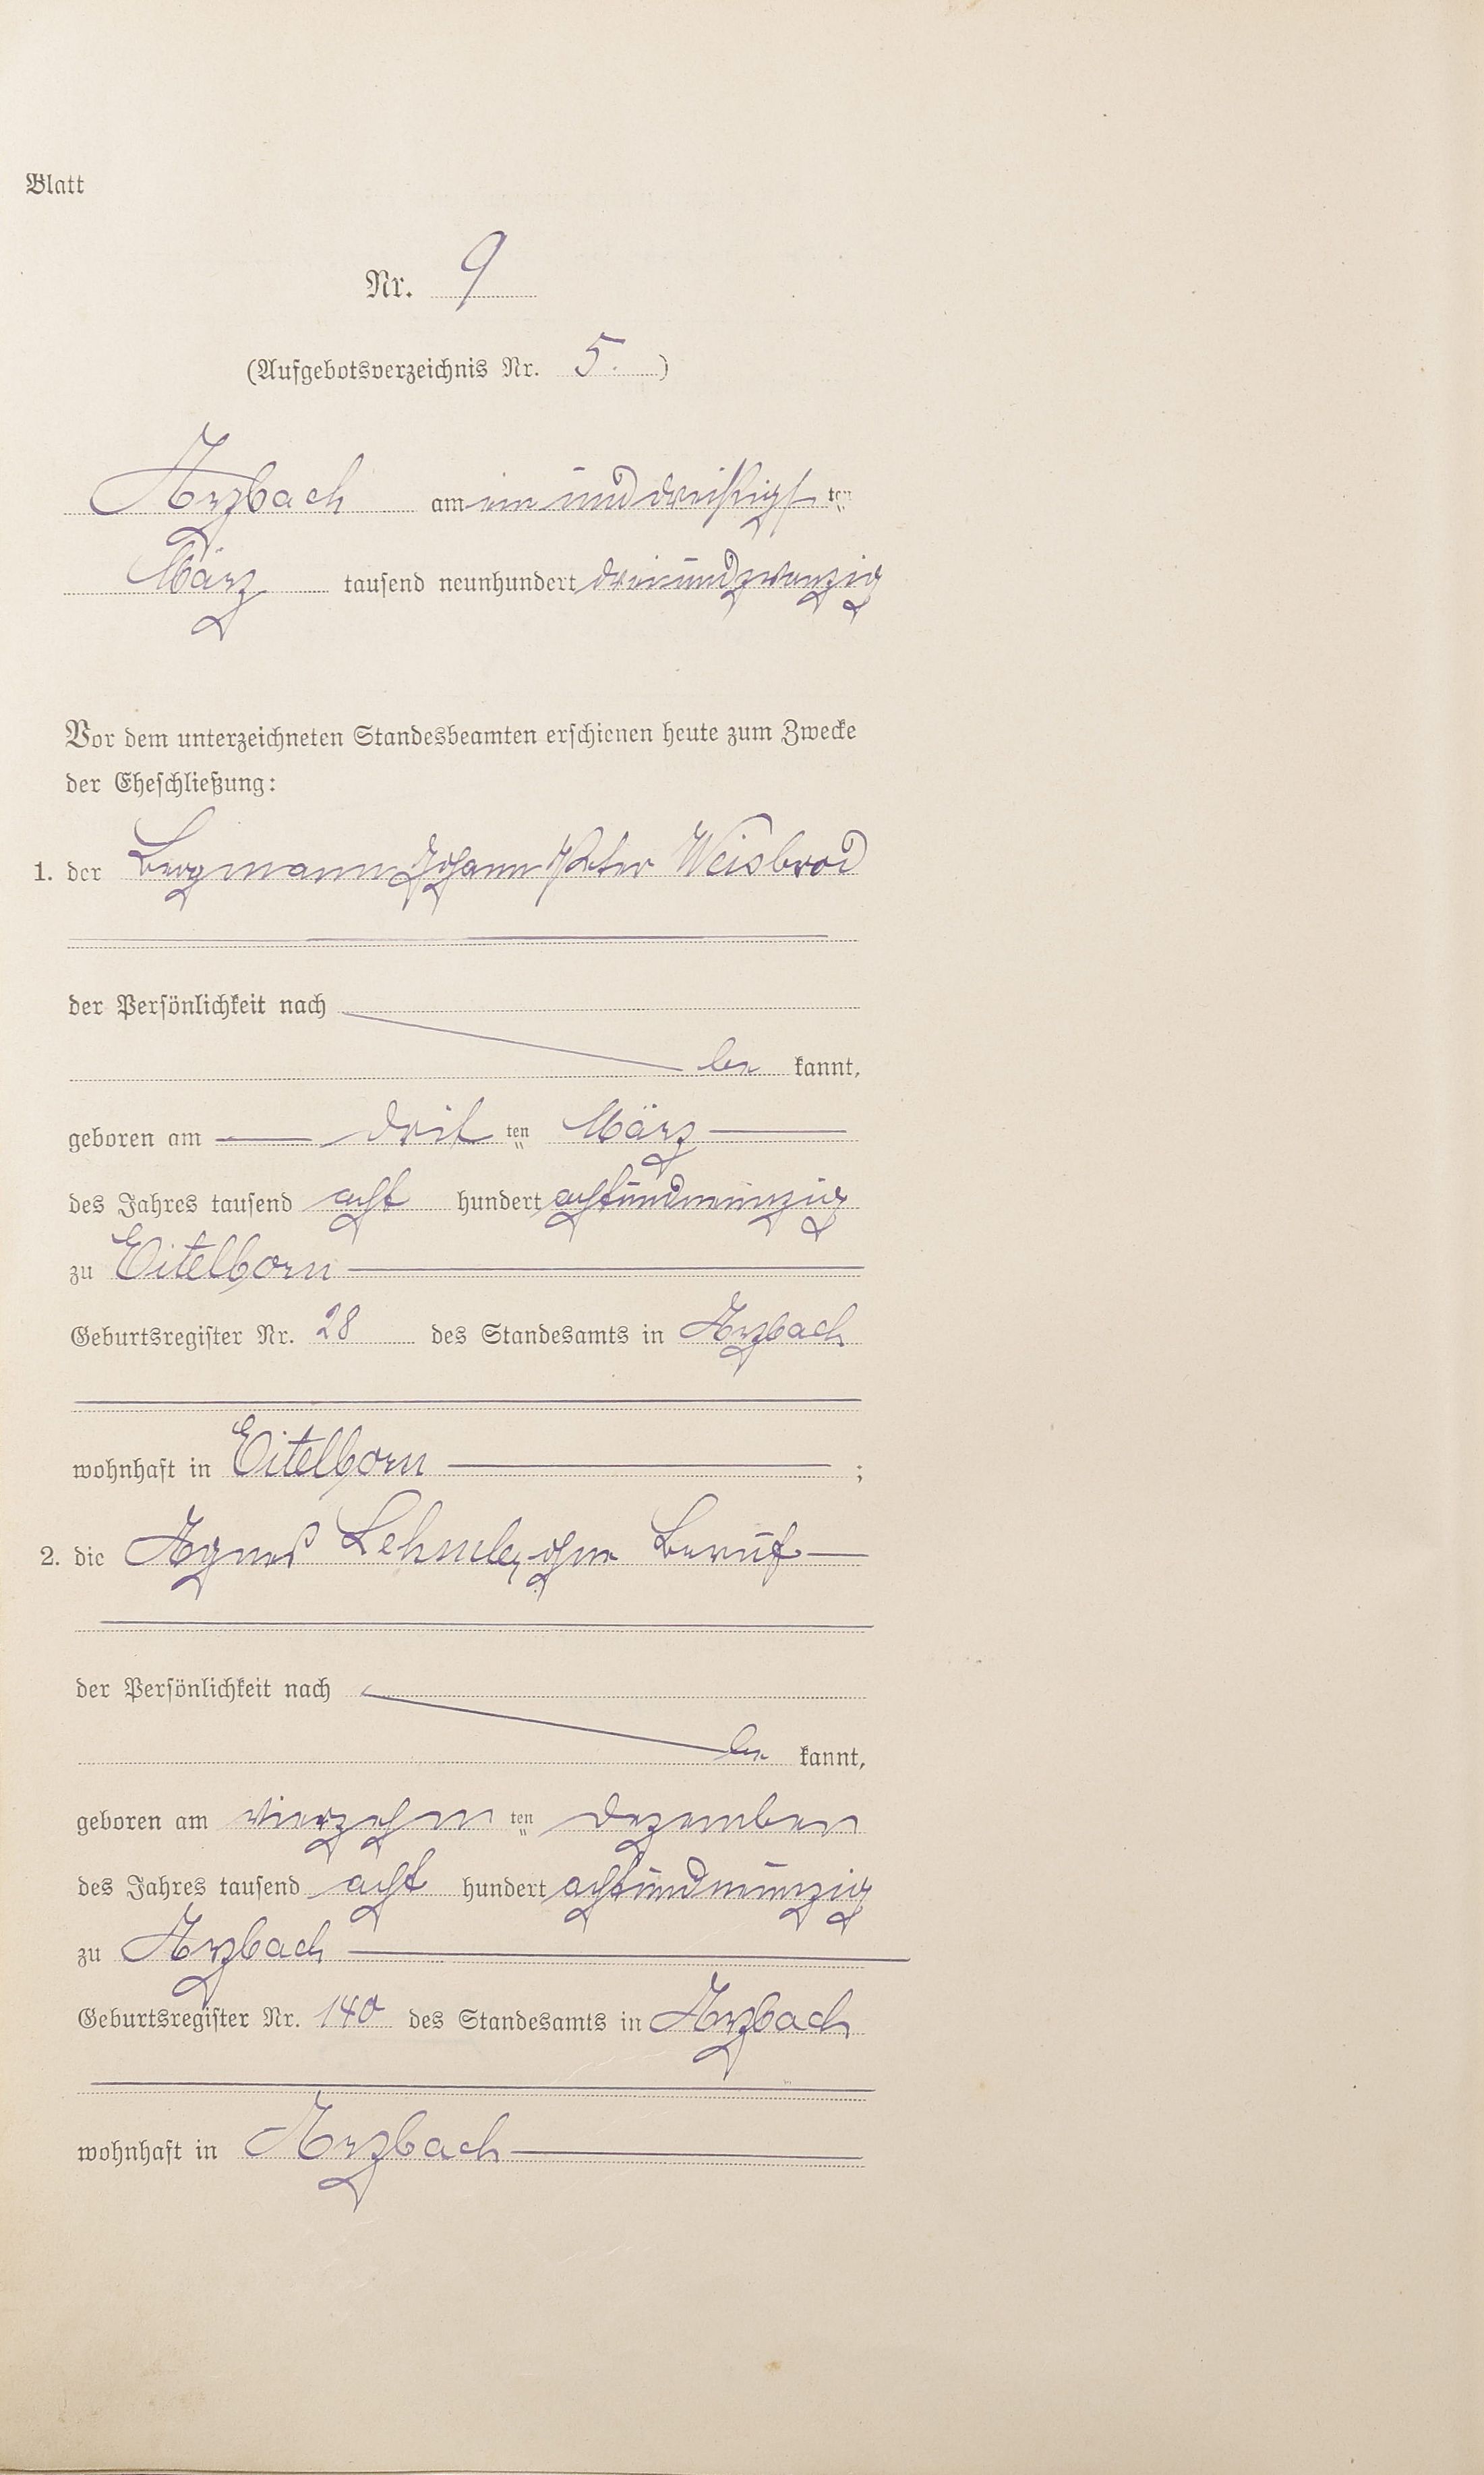 Blatt
Nr. 9
(Aufgebotsverzeichnis Nr. 5.)
Arzbach am einunddreißigsten
März tausend neunhundert dreiundzwanzig
Vor dem unterzeichneten Standesbeamten erschienen heute zum Zwecke
der Eheschließung:
1. der Bergmann Johann Peter Weisbrod
der Persönlichkeit nach
be kannt,
geboren am drit ten März
des Jahres tausend acht hundert achtundneunzig
zu Eitelborn
Geburtsregister Nr. 28 des Standesamts in Arzbach
wohnhaft in Eitelborn ;
2. die Agnes ohne Beruf
der Persönlichkeit nach
be kannt,
geboren am vierzehn ten Dezember
des Jahres tausend acht hundert achtundneunzig
zu Arzbach
Geburtsregister Nr. 140 des Standesamts in Arzbach
wohnhaft in Arzbach